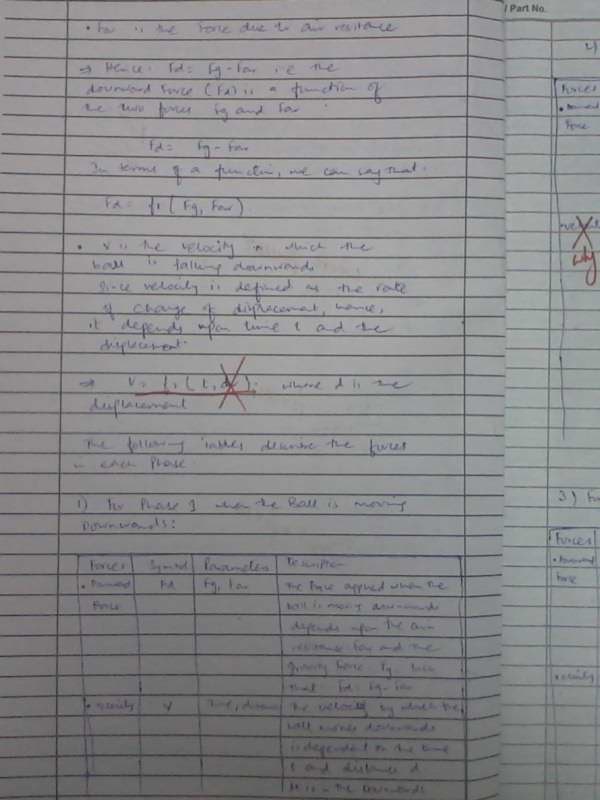 / Part No.
• Far is the Force due to air resitance
→ Hence. Fd = Fg - Far i.e the
downward Force (Fd) is a function of
the two forces Fg and Far
Fd = Fg - Far
In terms of a function, we can say that.
Fd = f1 ( Fg, Far)
• V is the velocity in which the
ball is falling downwards
Since velocity is defined as the rate
of change of displacement, hence,
it depends upon time t and the
displacement.
→ V = f2 ( t, ). where d is the
displacement
The following tables describe the forces
in each Phase
1) For Phase 1 when the Ball is moving
Downwards:
Forces Symbol Parameters Description
• Downward Fd Fg, Far The Force applied when the
Force ball is moving downwards
depends upon the air
resistance Far and the
gravity Force Fg. Such
that Fd = Fg - Far
• velocity V Time, The velocity by which the
ball moves downwards
is dependent on the time
t and distance d
in the Downwards
2)
Forces
• Downward
Force
why
3) Fo
Forces
• Downward
Force
• velocity